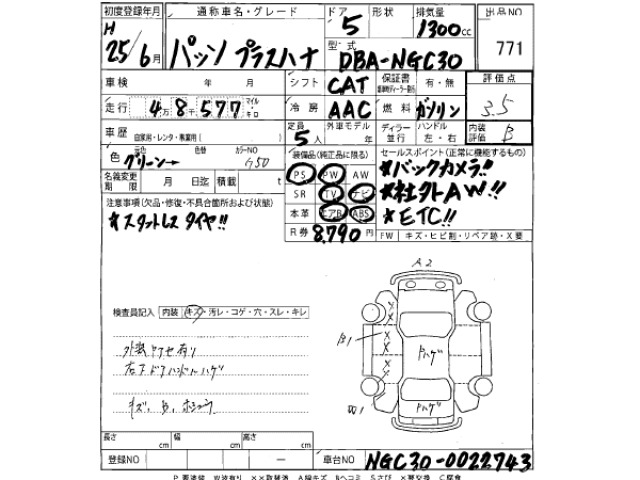 初度登録年月 通称車名・グレード ドア 形状 排気量 出品NO
H 25/6月 パッソ プラスハナ 5 1300cc 771
型式 DBA-NGC30
車検 年 月 シフト CAT 保証書 有・無 評価点
走行 4万8千577 マイル キロ 冷房 AAC 燃料 ガソリン 3.5
車歴 自家用・レンタ・事業用( ) 定員 5人 外車モデル 年 ディーラー 並行 ハンドル 左・右 内装評価 B
色 元色 グリーン→ 色替 カラーNO G50 装備品(純正品に限る) セールスポイント(正常に機能するもの)
名義変更期限 月 日迄 積載 t PS PW AW *バックカメラ!!
注意事項(欠品・修復・不具合箇所および状態) SR TV ナビ *社外AW!!
*スタットレス タイヤ!! 本革 エアB ABS *ETC!!
R券 8,790円 FW キズ・ヒビ割・リペア跡・X要
A2
検査員記入 内装 キズ・汚レ・コゲ・穴・スレ・キレ
B1 ハゲ
右フドアハンドルハゲ
W1 ハゲ
キズ、B、
長さ cm 幅 cm 高さ cm
登録NO ー 車台NO NGC30-0022743